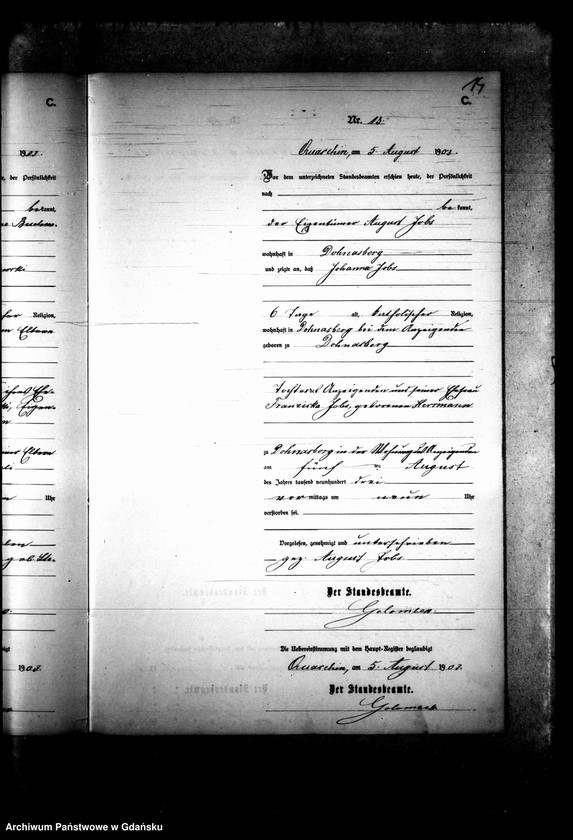 C.
C.
Nr. 13.
Quaschin, am 5. August 1903.
Vor dem unterzeichneten Standesbeamten erschien heute, der Persönlichkeit
nach
be kannt,
der Eigentümer August Jobs
wohnhaft in Dohnasberg
und zeigte an, daß Johanna Jobs
6 Tage alt, katholischer Religion,
wohnhaft in Dohnasberg bei dem Anzeigenden
geboren zu Dohnasberg
Tochter des Anzeigenden und seiner Ehefrau
Franziska Jobs, geborenen Herrmann
zu Dohnasberg in der Wohnung des Anzeigenden
am fünf ten August
des Jahres tausend neunhundert drei
vor mittags um neun Uhr
verstorben sei.
Vorgelesen, genehmigt und unterschrieben
gez. August Jobs.
Der Standesbeamte.
Die Uebereinstimmung mit dem Haupt-Register beglaubigt
Quaschin, am 5. August 1903.
Der Standesbeamte.
e, der Persönlichkeit
be kannt,
Religion,
Eltern
Uhr
Archiwum Państwowe w Gdańsku